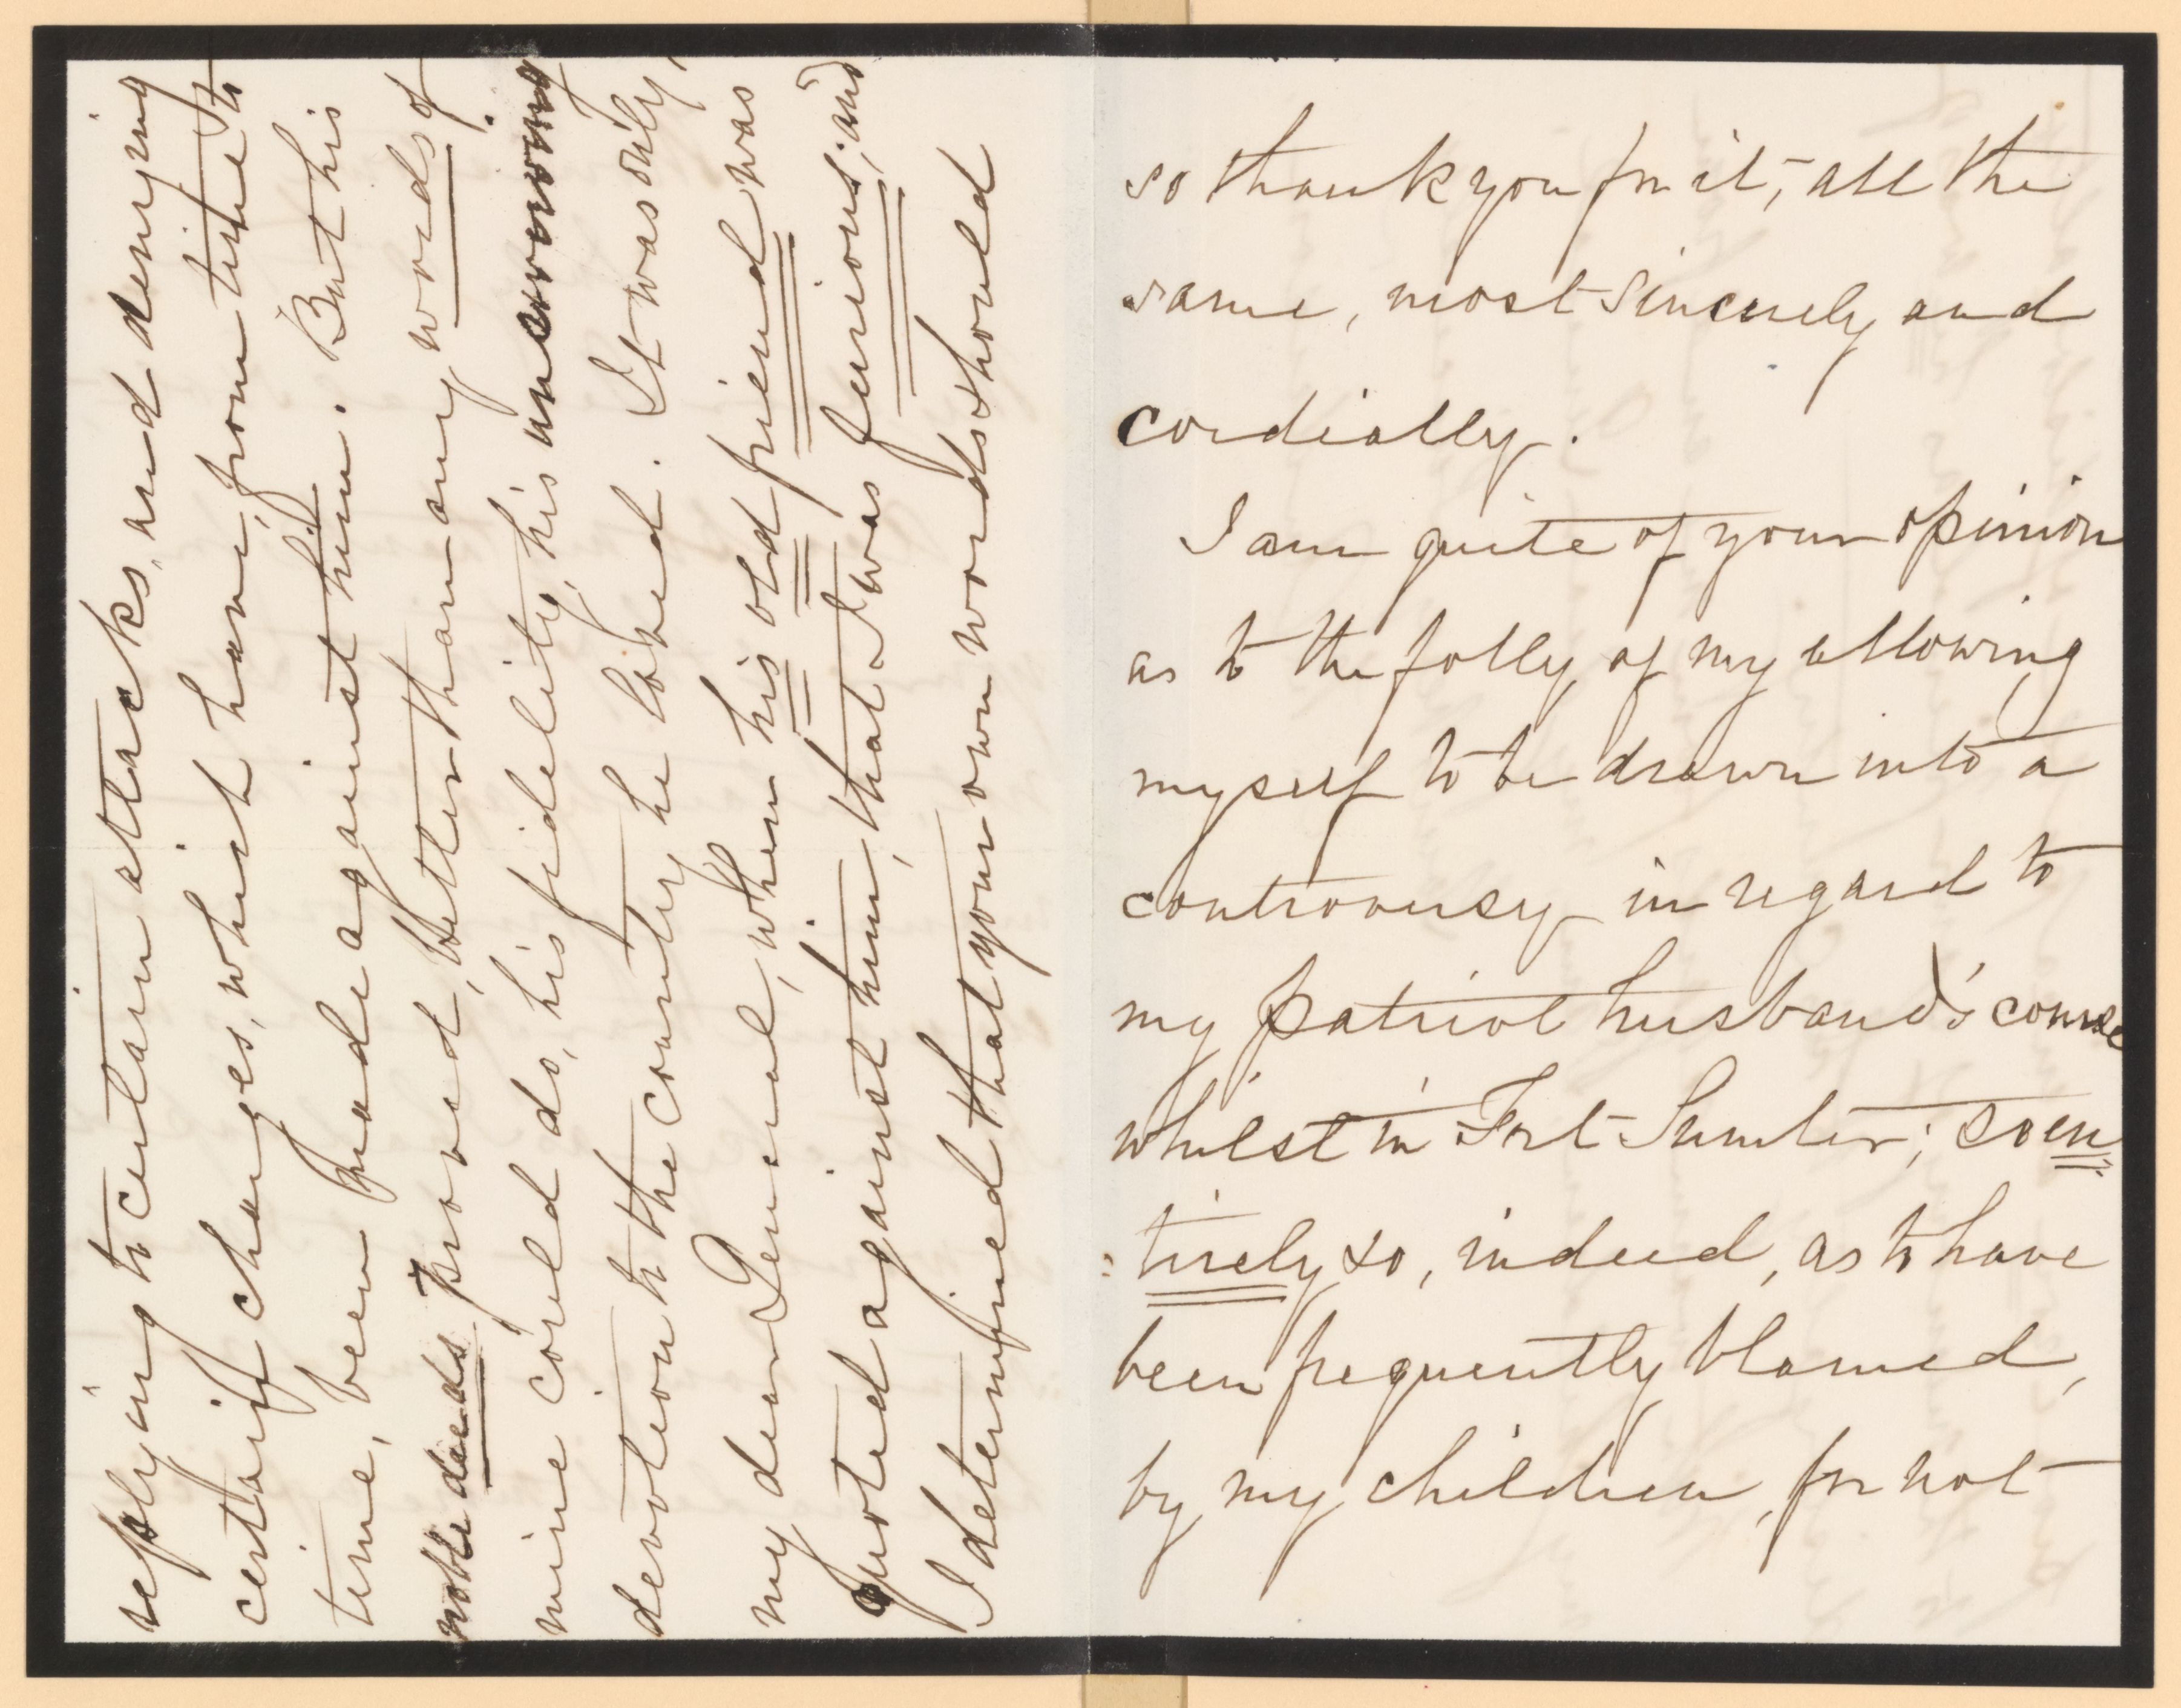 so thank you for it, all the
same, most sincerely and
cordially.
I am quite of your opinion
as to the folly of my allowing
myself to be drawn into a
controversy in regard to
my patriot husband's course
whilst in Fort Sumter; so en
: tirely so, indeed, as to have
been frequently blamed,
by my children, for not
replying to certain attacks, and denying
certain charges, which have, from time to
time, been made against him. But his
noble deeds proved, better than any words of
mine could do, his fidelity, his unswerving
devotion to the country he loved. It was only,
my dear General, when his old friend was
quoted against him, that I was furious; and
I determined that your own words should